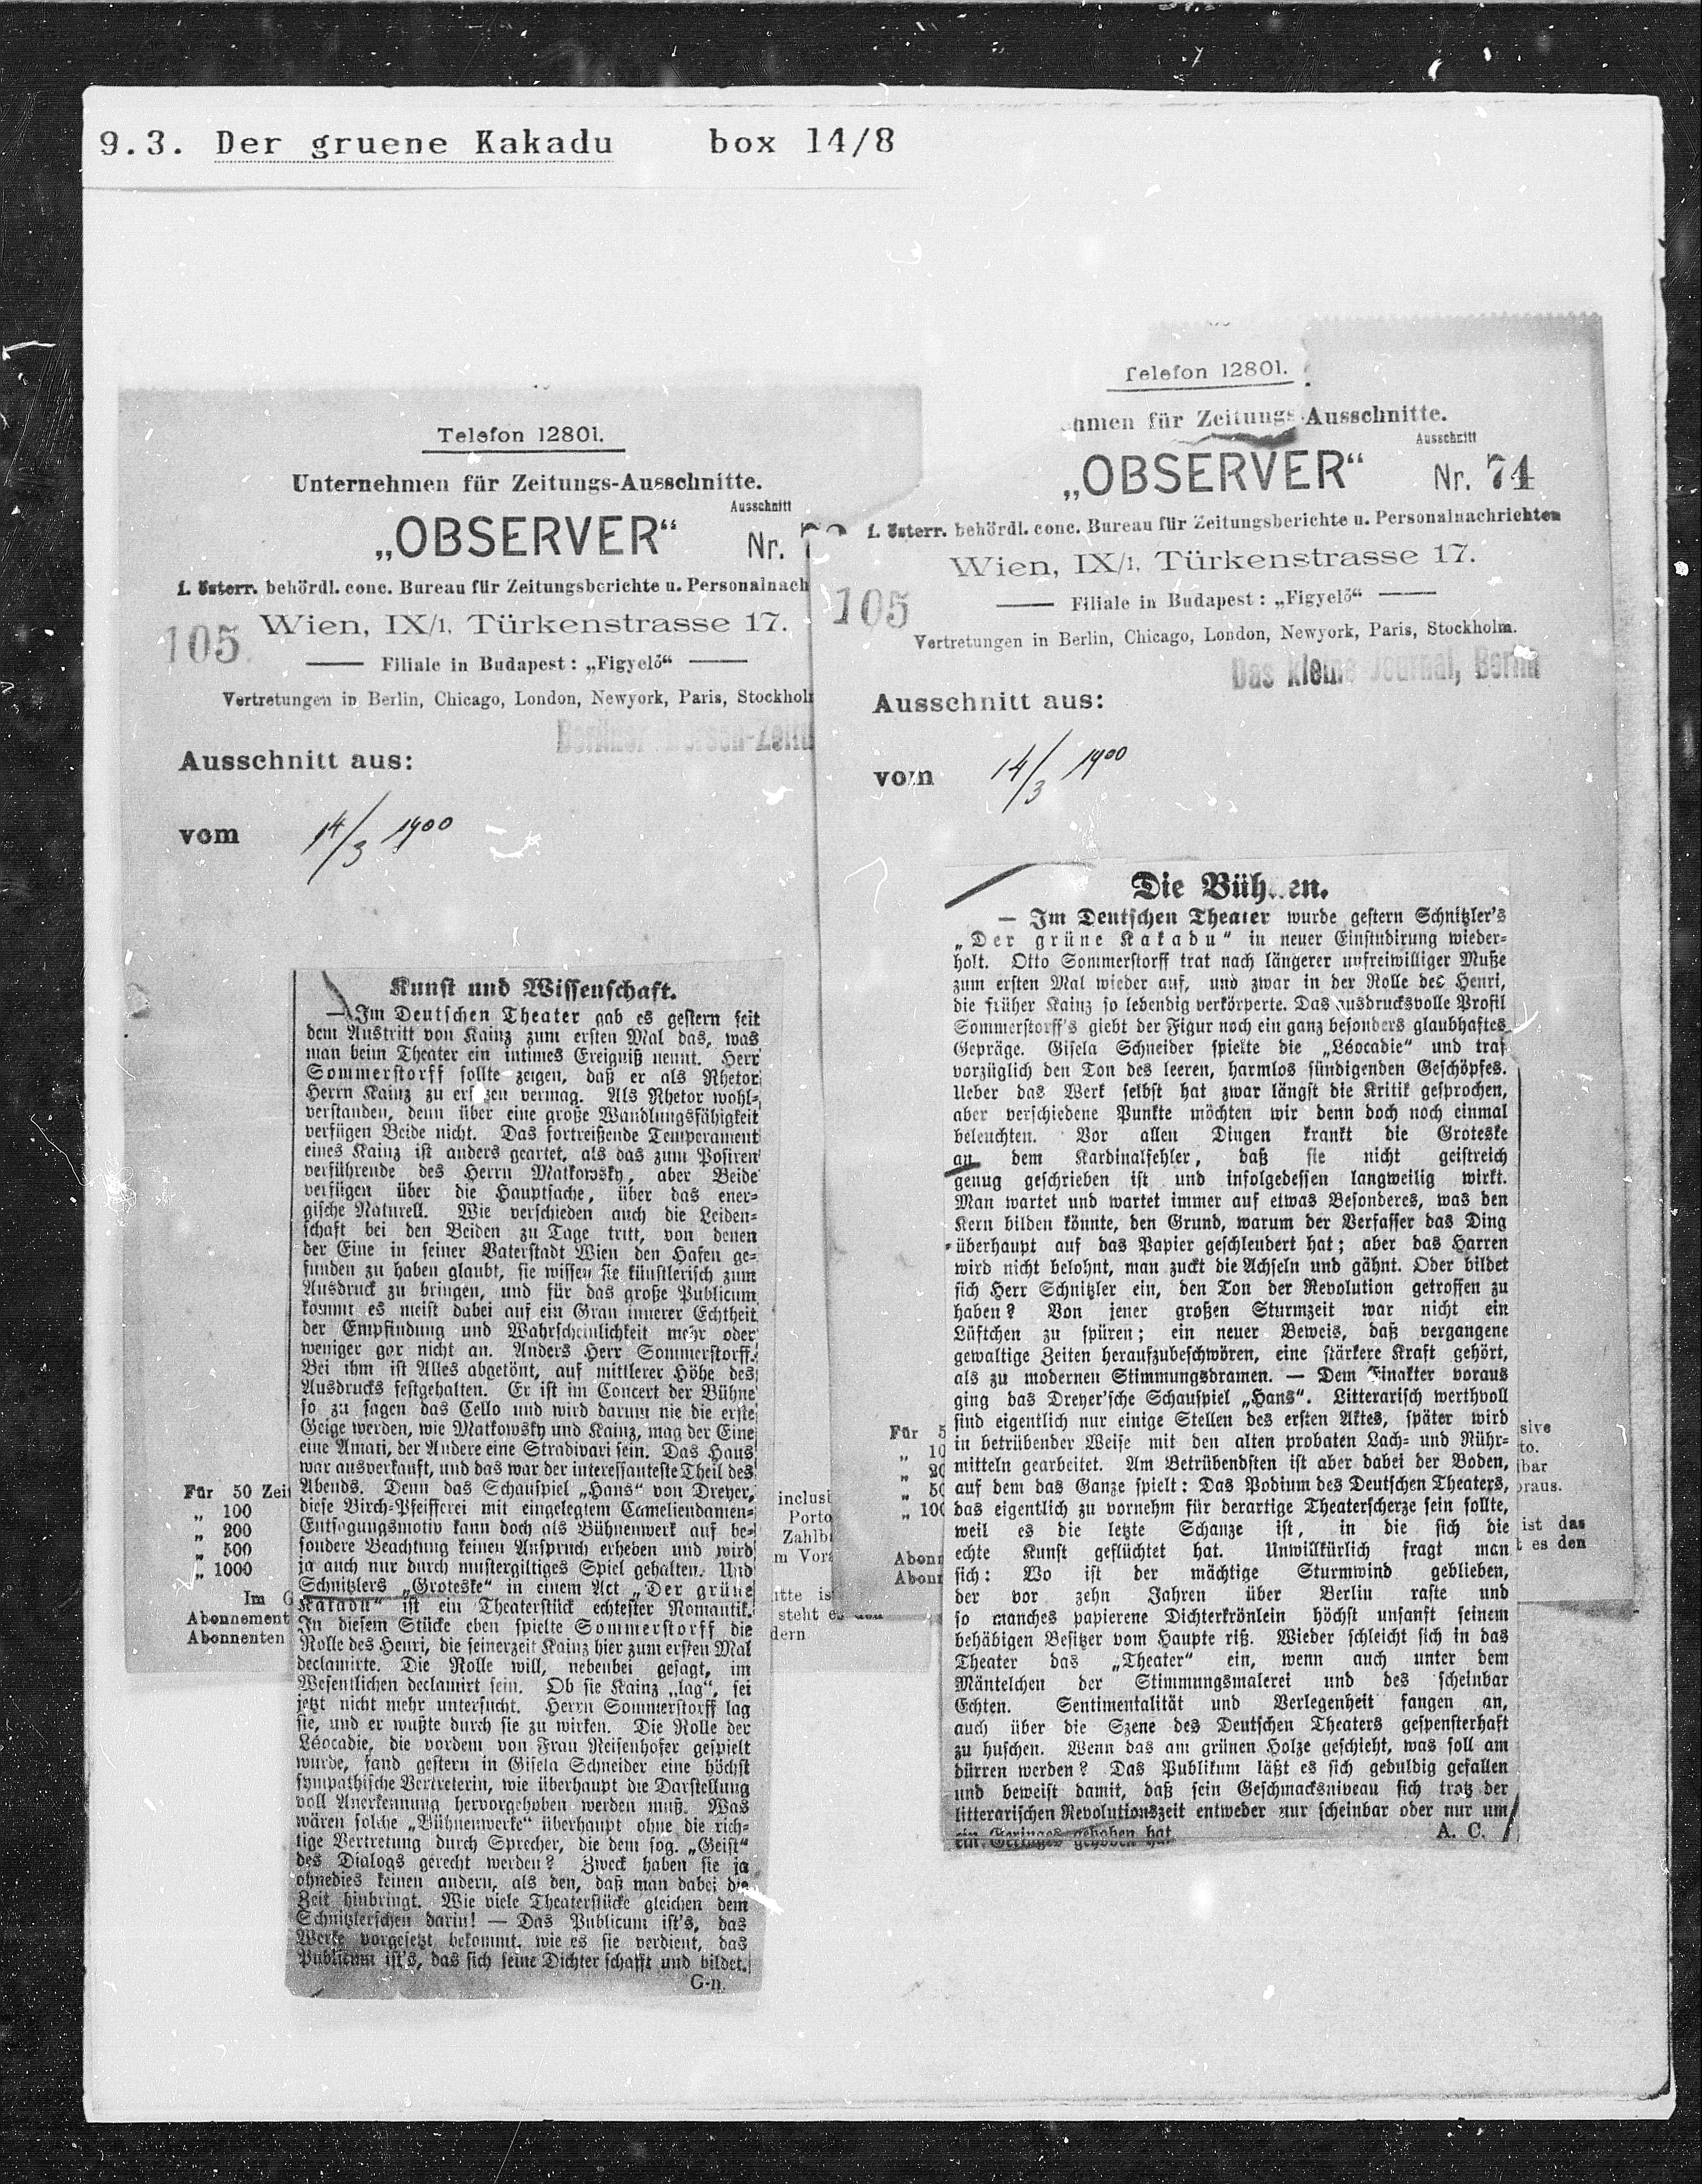 9.3. Der gruene Kakadu box 14/8
Telefon 12801.
Unternehmen für Zeitungs-Ausschnitte.
Ausschnitt
„OBSERVER“ Nr.
I. österr. behördl. conc. Bureau für Zeitungsberichte u. Personalnach
105 Wien, IX/1, Türkenstrasse 17.
Filiale in Budapest: „Figyelő“
Vertretungen in Berlin, Chicago, London, Newyork, Paris, Stockhol
Berliner Börsen-Zeitu
Ausschnitt aus:
vom 14/3 1900
Kunst und Wissenschaft.
— Im Deutschen Theater gab es gestern seit
dem Austritt von Kainz zum ersten Mal das, was
man beim Theater ein intimes Ereigniß nennt. Herr
Sommerstorff sollte zeigen, daß er als Rhetor
Herrn Kainz zu ersetzen vermag. Als Rhetor wohl-
verstanden, denn über eine große Wandlungsfähigkeit
verfügen Beide nicht. Das fortreißende Temperament
eines Kainz ist anders geartet, als das zum Posiren
verführende des Herrn Matkowsky, aber Beide
verfügen über die Hauptsache, über das ener-
gische Naturell. Wie verschieden auch die Leiden-
schaft bei den Beiden zu Tage tritt, von denen
der Eine in seiner Vaterstadt Wien den Hafen ge-
funden zu haben glaubt, sie wissen sie künstlerisch zum
Ausdruck zu bringen, und für das große Publicum
kommt es meist dabei auf ein Gran innerer Echtheit
der Empfindung und Wahrscheinlichkeit mehr oder
weniger gar nicht an. Anders Herr Sommerstorff.
Bei ihm ist Alles abgetönt, auf mittlerer Höhe des
Ausdrucks festgehalten. Er ist im Concert der Bühne
so zu sagen das Cello und wird darum nie die erste
Geige werden, wie Matkowsky und Kainz, mag der Eine
eine Amati, der Andere eine Stradivari sein. Das Haus
war ausverkauft, und das war der interessanteste Theil des
Abends. Denn das Schauspiel „Hans“ von Dreyer,
diese Birch-Pfeifferei mit eingelegtem Cameliendamen-
Entsagungsmotiv kann doch als Bühnenwerk auf be-
sondere Beachtung keinen Anspruch erheben und wird
ja auch nur durch mustergiltiges Spiel gehalten. Und
Schnitzlers „Groteske“ in einem Act „Der grüne
Kakadu“ ist ein Theaterstück echtester Romantik.
In diesem Stücke eben spielte Sommerstorff die
Rolle des Henri, die seinerzeit Kainz hier zum ersten Mal
declamirte. Die Rolle will, nebenbei gesagt, im
Wesentlichen declamirt sein. Ob sie Kainz „lag“, sei
jetzt nicht mehr untersucht. Herrn Sommerstorff lag
sie, und er wußte durch sie zu wirken. Die Rolle der
Léocadie, die vordem von Frau Reisenhofer gespielt
wurde, fand gestern in Gisela Schneider eine höchst
sympathische Vertreterin, wie überhaupt die Darstellung
voll Anerkennung hervorgehoben werden muß. Was
wären solche „Bühnenwerke“ überhaupt ohne die rich-
tige Vertretung durch Sprecher, die dem sog. „Geist“
des Dialogs gerecht werden? Zweck haben sie ja
ohnedies keinen andern, als den, daß man dabei die
Zeit hinbringt. Wie viele Theaterstücke gleichen dem
Schnitzlerschen darin! — Das Publicum ist's, das
Werke vorgesetzt bekommt, wie es sie verdient, das
Publicum ist's, das sich seine Dichter schafft und bildet.
G-n.
Für 50 Zei
„ 100
„ 200
„ 500
„ 1000
Im G
Abonnement
Abonnenten
inclusi
Porto
Zahlb
m Vor
itte is
steht es den
dern
Telefon 12801.
hmen für Zeitungs-Ausschnitte.
Ausschnitt
„OBSERVER“ Nr. 74
I. österr. behördl. conc. Bureau für Zeitungsberichte u. Personalnachrichten
Wien, IX/1, Türkenstrasse 17.
105
Filiale in Budapest: „Figyelő“
Vertretungen in Berlin, Chicago, London, Newyork, Paris, Stockholm.
Das kleine Journal, Berlin
Ausschnitt aus:
vom 14/3 1900
Die Bühnen.
— Im Deutschen Theater wurde gestern Schnitzler's
„Der grüne Kakadu“ in neuer Einstudirung wieder-
holt. Otto Sommerstorff trat nach längerer unfreiwilliger Muße
zum ersten Mal wieder auf, und zwar in der Rolle des Henri,
die früher Kainz so lebendig verkörperte. Das ausdrucksvolle Profil
Sommerstorff's giebt der Figur noch ein ganz besonders glaubhaftes
Gepräge. Gisela Schneider spielte die „Léocadie“ und traf
vorzüglich den Ton des leeren, harmlos sündigenden Geschöpfes.
Ueber das Werk selbst hat zwar längst die Kritik gesprochen,
aber verschiedene Punkte möchten wir denn doch noch einmal
beleuchten. Vor allen Dingen krankt die Groteske
an dem Kardinalfehler, daß sie nicht geistreich
genug geschrieben ist und infolgedessen langweilig wirkt.
Man wartet und wartet immer auf etwas Besonderes, was den
Kern bilden könnte, den Grund, warum der Verfasser das Ding
überhaupt auf das Papier geschleudert hat; aber das Harren
wird nicht belohnt, man zuckt die Achseln und gähnt. Oder bildet
sich Herr Schnitzler ein, den Ton der Revolution getroffen zu
haben? Von jener großen Sturmzeit war nicht ein
Lüftchen zu spüren; ein neuer Beweis, daß vergangene
gewaltige Zeiten heraufzubeschwören, eine stärkere Kraft gehört,
als zu modernen Stimmungsdramen. — Dem Einakter voraus
ging das Dreyer'sche Schauspiel „Hans“. Litterarisch werthvoll
sind eigentlich nur einige Stellen des ersten Aktes, später wird
in betrübender Weise mit den alten probaten Lach- und Rühr-
mitteln gearbeitet. Am Betrübendsten ist aber dabei der Boden,
auf dem das Ganze spielt: Das Podium des Deutschen Theaters,
das eigentlich zu vornehm für derartige Theaterscherze sein sollte,
weil es die letzte Schanze ist, in die sich die
echte Kunst geflüchtet hat. Unwillkürlich fragt man
sich: Wo ist der mächtige Sturmwind geblieben,
der vor zehn Jahren über Berlin raste und
so manches papierene Dichterkrönlein höchst unsanft seinem
behäbigen Besitzer vom Haupte riß. Wieder schleicht sich in das
Theater das „Theater“ ein, wenn auch unter dem
Mäntelchen der Stimmungsmalerei und des scheinbar
Echten. Sentimentalität und Verlegenheit fangen an,
auch über die Szene des Deutschen Theaters gespensterhaft
zu huschen. Wenn das am grünen Holze geschieht, was soll am
dürren werden? Das Publikum läßt es sich geduldig gefallen
und beweist damit, daß sein Geschmacksniveau sich trotz der
litterarischen Revolutionszeit entweder nur scheinbar oder nur um
ein Geringes gehoben hat. A. C.
Für 5
„ 10
„ 20
„ 50
„ 100
Abonn
Abonn
sive
to.
bar
oraus.
ist das
t es den